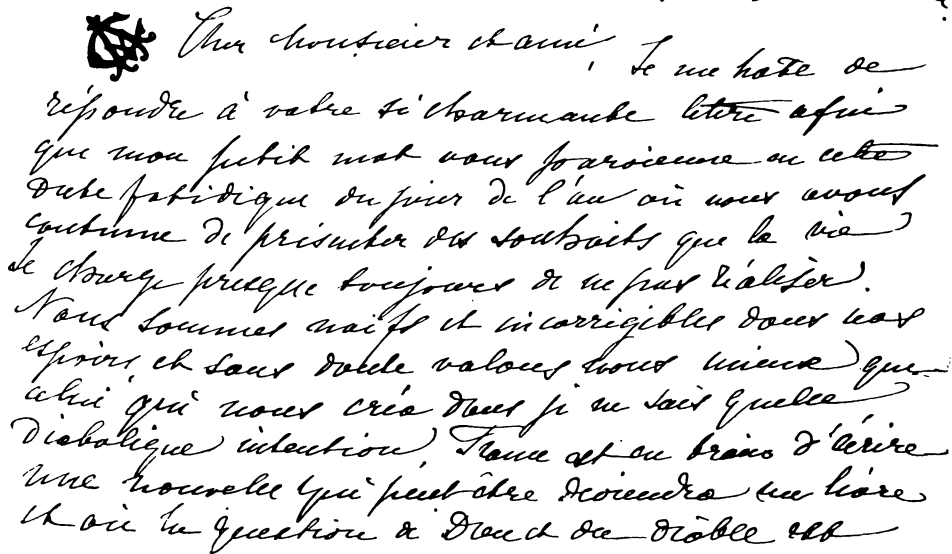 Cher Monsieur et ami,
Je me hâte de
répondre à votre si charmante lettre afin
que mon petit mot vous parvienne en cette
date fatidique du jour de l'an où nous avons
coutume de présenter des souhaits que la vie
se charge presque toujours de ne pas réaliser.
Nous sommes naïfs et incorrigibles dans nos
espoirs et sans doute valons nous mieux que
celui qui nous créa dans je ne sais quelle
diabolique intention. France est en train d'écrire
une nouvelle qui peut être deviendra un livre
et où la question de Dieu et du diable est